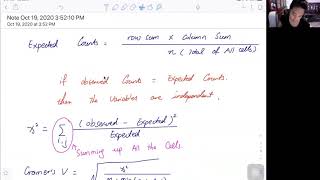 Note Oct 19, 2020 3:52:10 PM
Oct 19, 2020 at 3:52 PM
Expected Counts = row sum x column sum
n (total of All cells)
if observed Counts = Expected Counts.
then the Variables are independent.
x² = Σ (observed - Expected)²
i,j Expected
Summing up All the Cells.
Cramer's V = √ x²